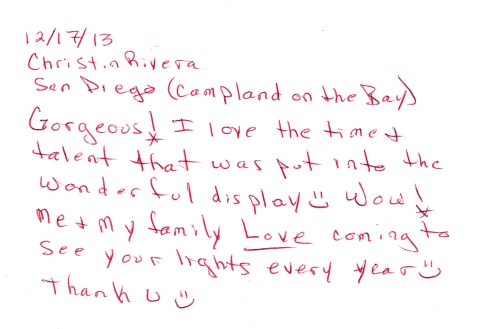 12/17/13
Christin Rivera
San Diego (Campland on the Bay)
Gorgeous! I love the time +
talent that was put into the
wonderful display ☺ Wow!
me + my family Love coming to
see your lights every year ☺
Thank U ☺